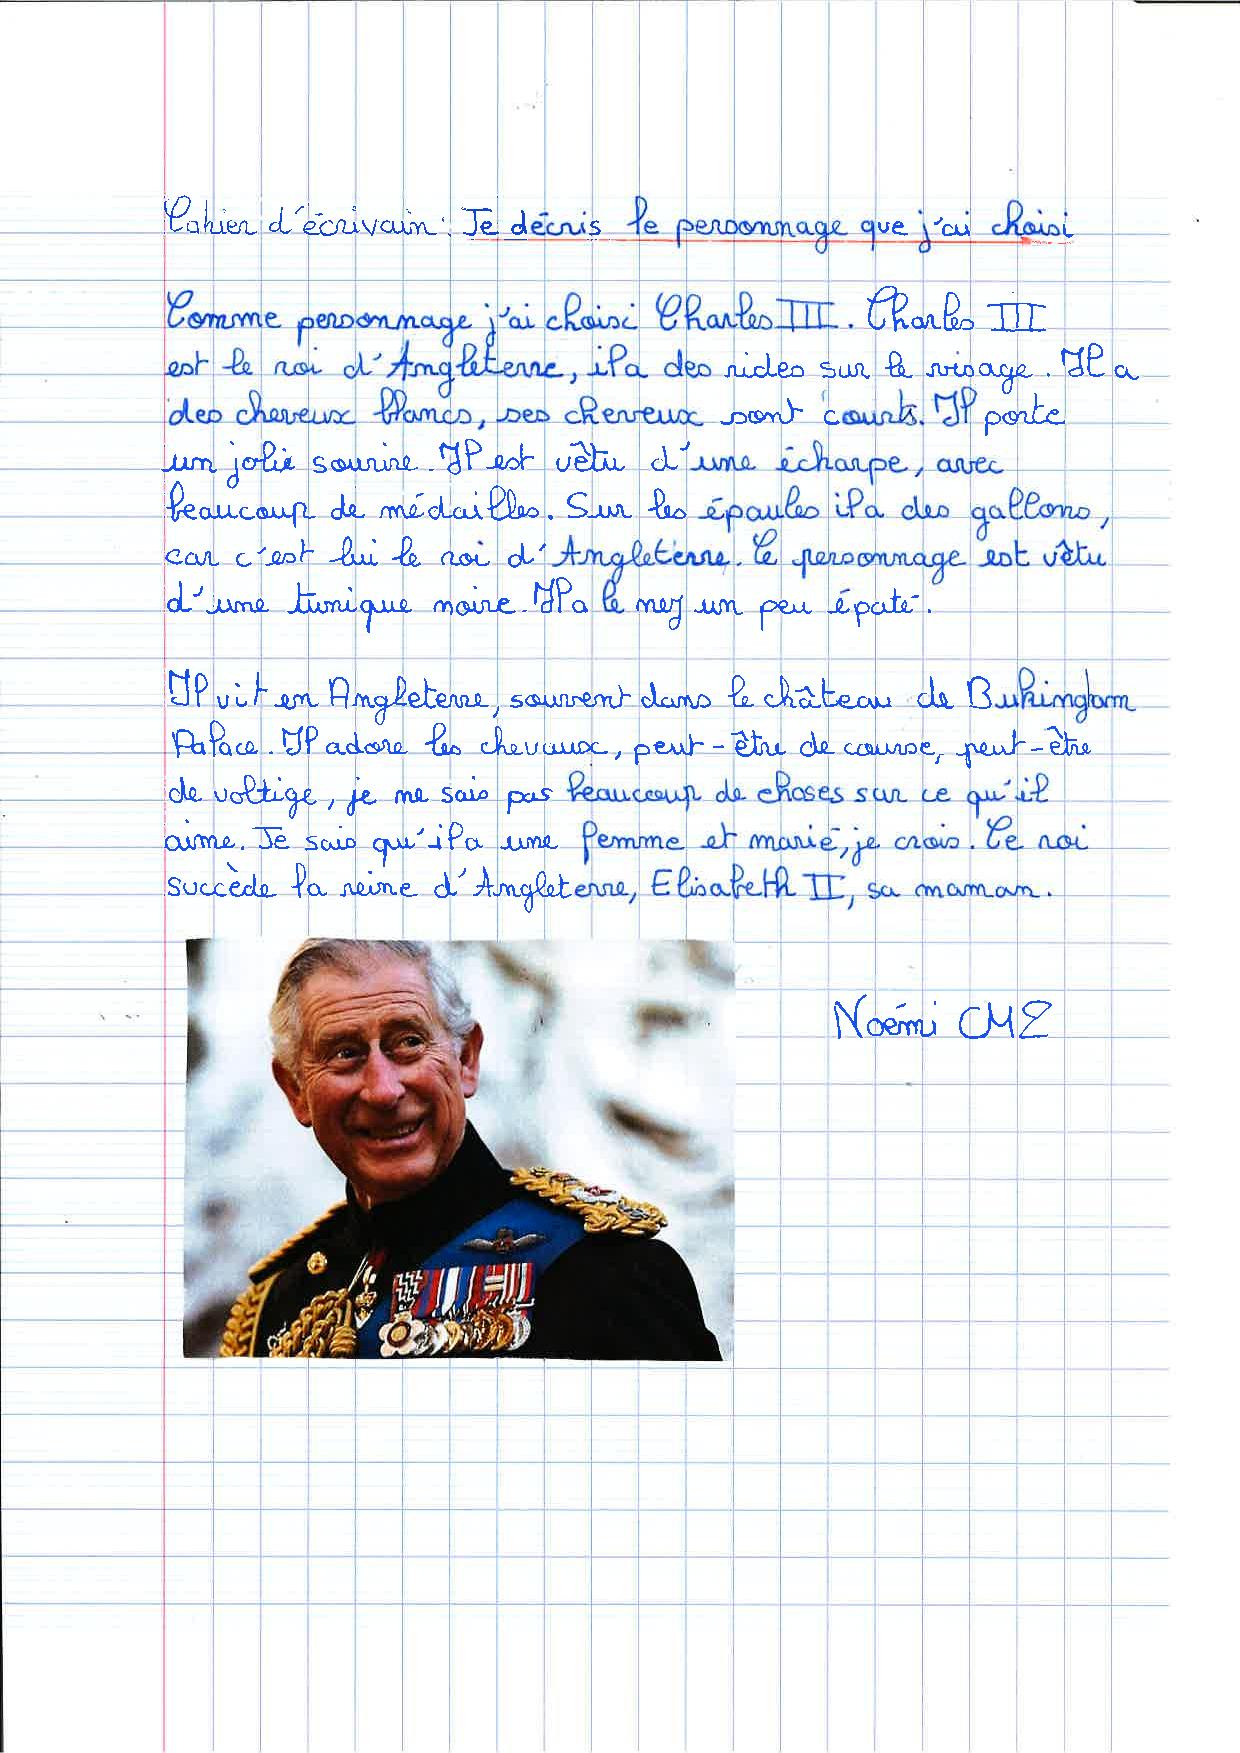 Cahier d'écrivain : Je décris le personnage que j'ai choisi
Comme personnage j'ai choisi Charles III. Charles III
est le roi d'Angleterre, il a des rides sur le visage. Il a
des cheveux blancs, ses cheveux sont courts. Il porte
un jolie sourire. Il est vêtu d'une écharpe, avec
beaucoup de médailles. Sur les épaules il a des gallons,
car c'est lui le roi d'Angleterre. Ce personnage est vêtu
d'une tunique noire. Il a le nez un peu épaté.
Il vit en Angleterre, souvent dans le château de Bukingham
Palace. Il adore les chevaux, peut-être de course, peut-être
de voltige, je ne sais pas beaucoup de choses sur ce qu'il
aime. Je sais qu'il a une femme et marié, je crois. Ce roi
succède la reine d'Angleterre, Elisabeth II, sa maman.
Noémi CM2